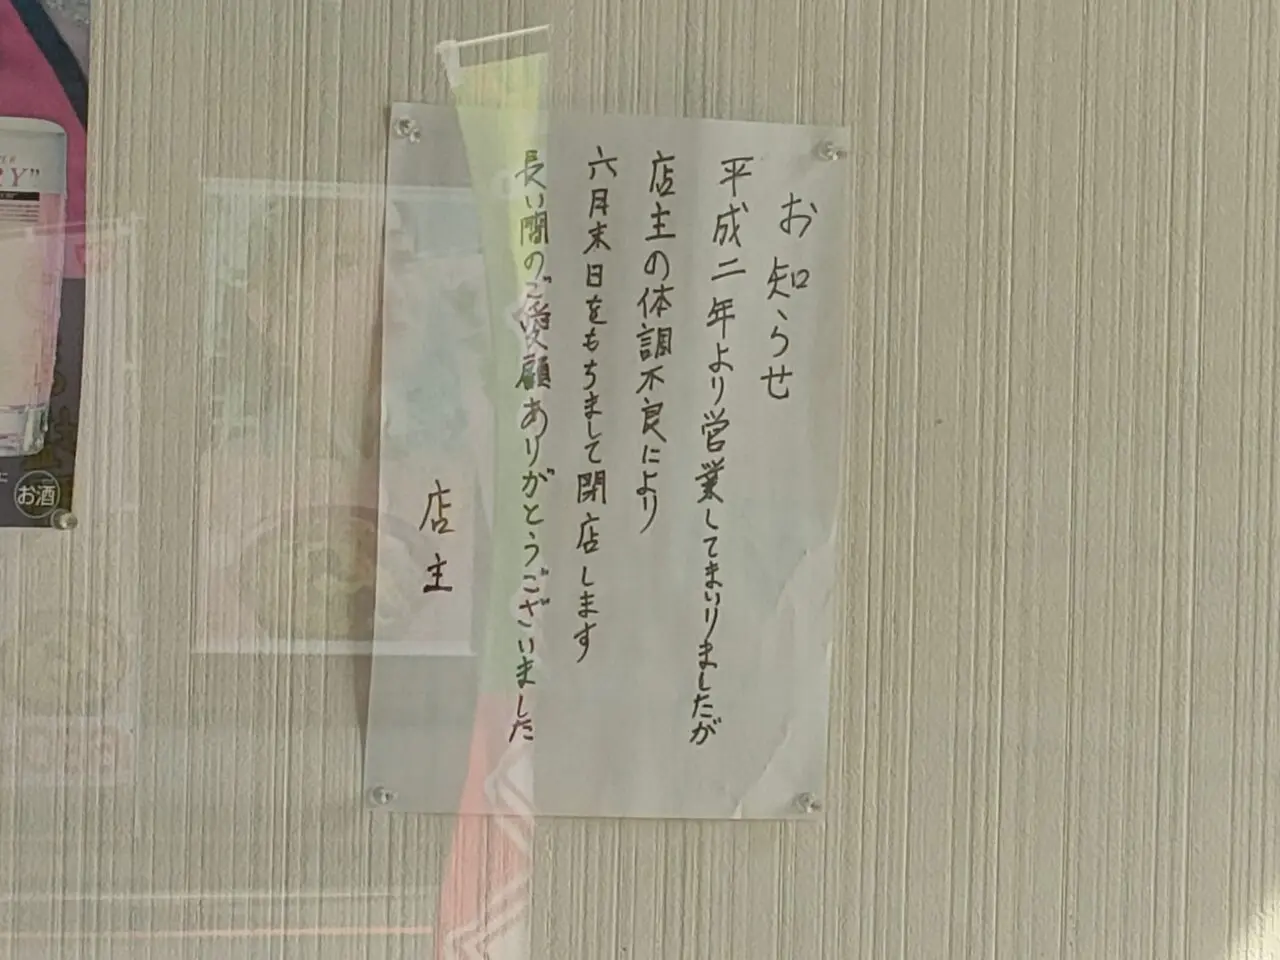 お知らせ
平成二年より営業してまいりましたが
店主の体調不良により
六月末日をもちまして閉店します
長い間のご愛顧ありがとうございました
店主
RY"
お酒